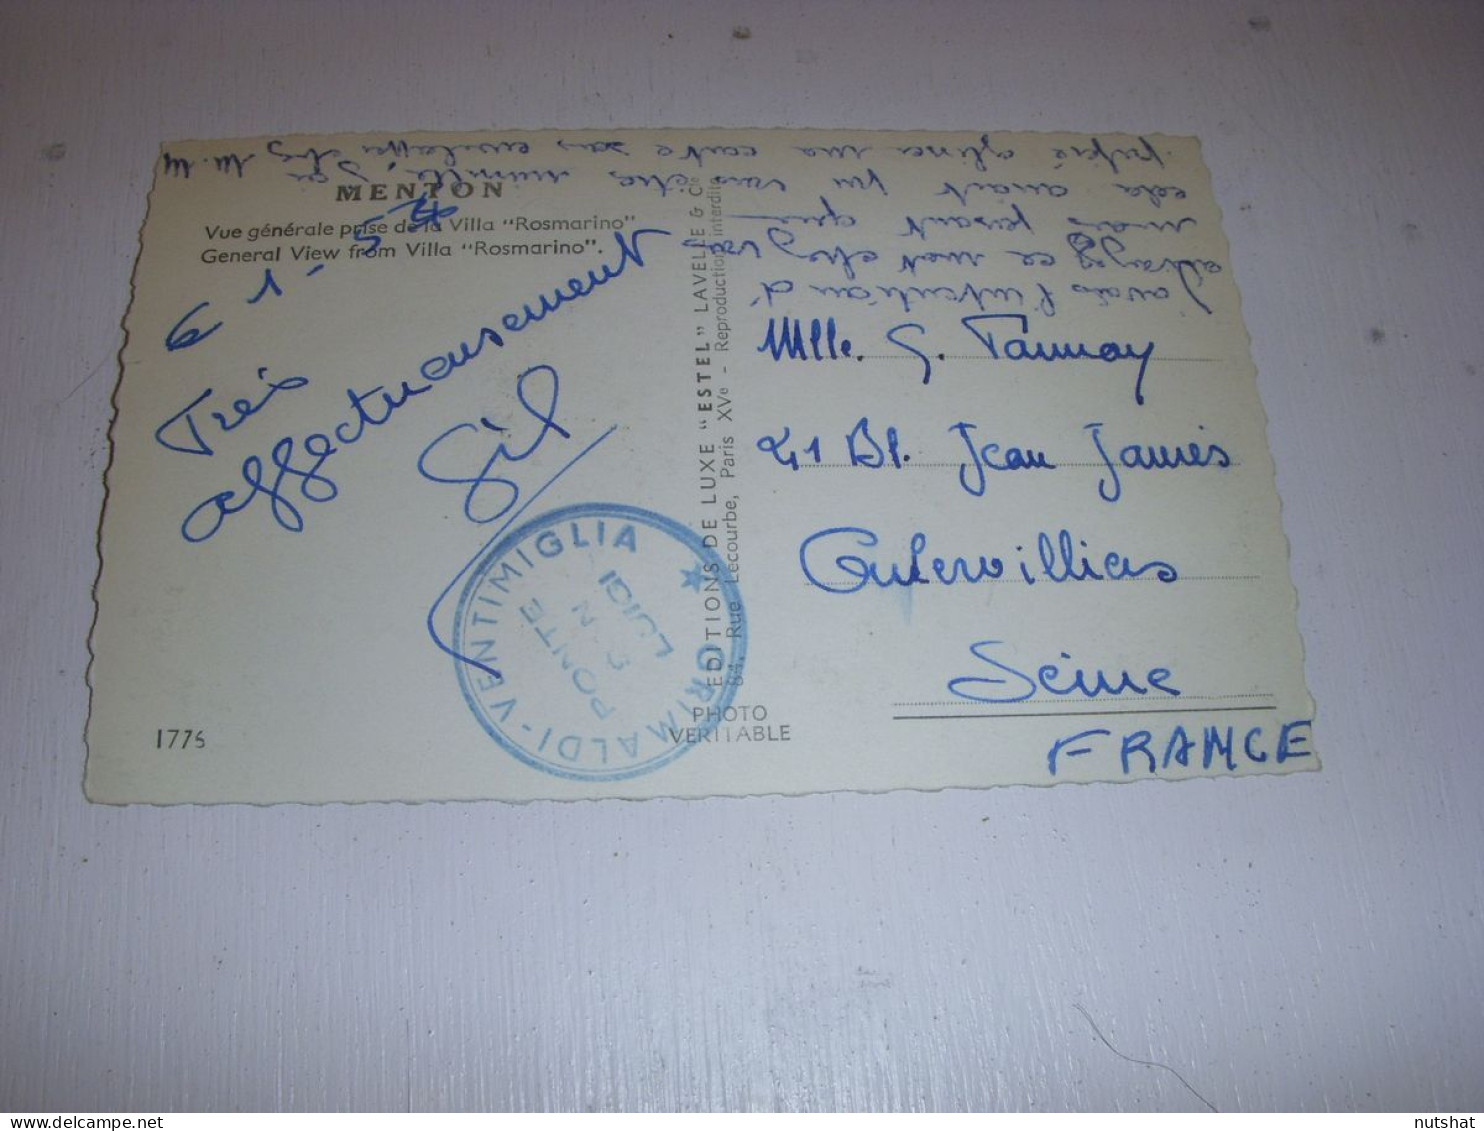 MENTON
Vue générale prise de la Villa "Rosmarino"
General View from Villa "Rosmarino".
6 1 - 54
Très
affectueusement
Gil
J'avais l'intention d'
ce mot chez
mais
cela avant
ma carte sans enveloppe chez M. M
EDITIONS DE LUXE "ESTEL" LAVELLE & Cie
84, Rue Lecourbe, Paris XVe - Reproduction interdite
PHOTO
VERITABLE
Mlle. G. Tannay
21 Bl. Jean Jaurès
Aubervilliers
Seine
FRANCE
GRIMALDI - VENTIMIGLIA
PONTE
LUIGI
1775
nutshat